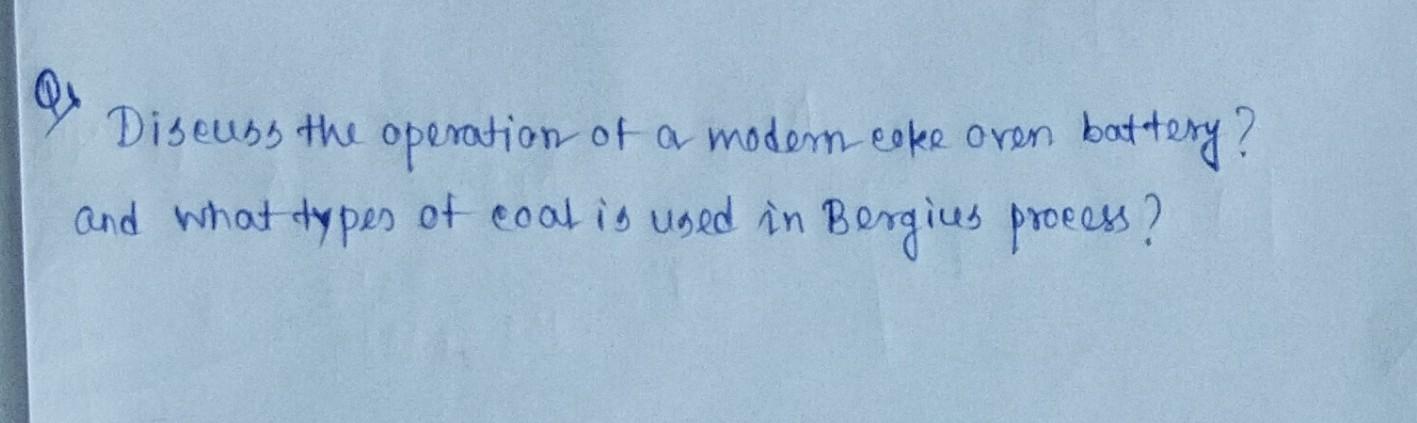 Qs
Discuss the operation of a modern coke oven battery?
and what types of coal is used in Bergius process?